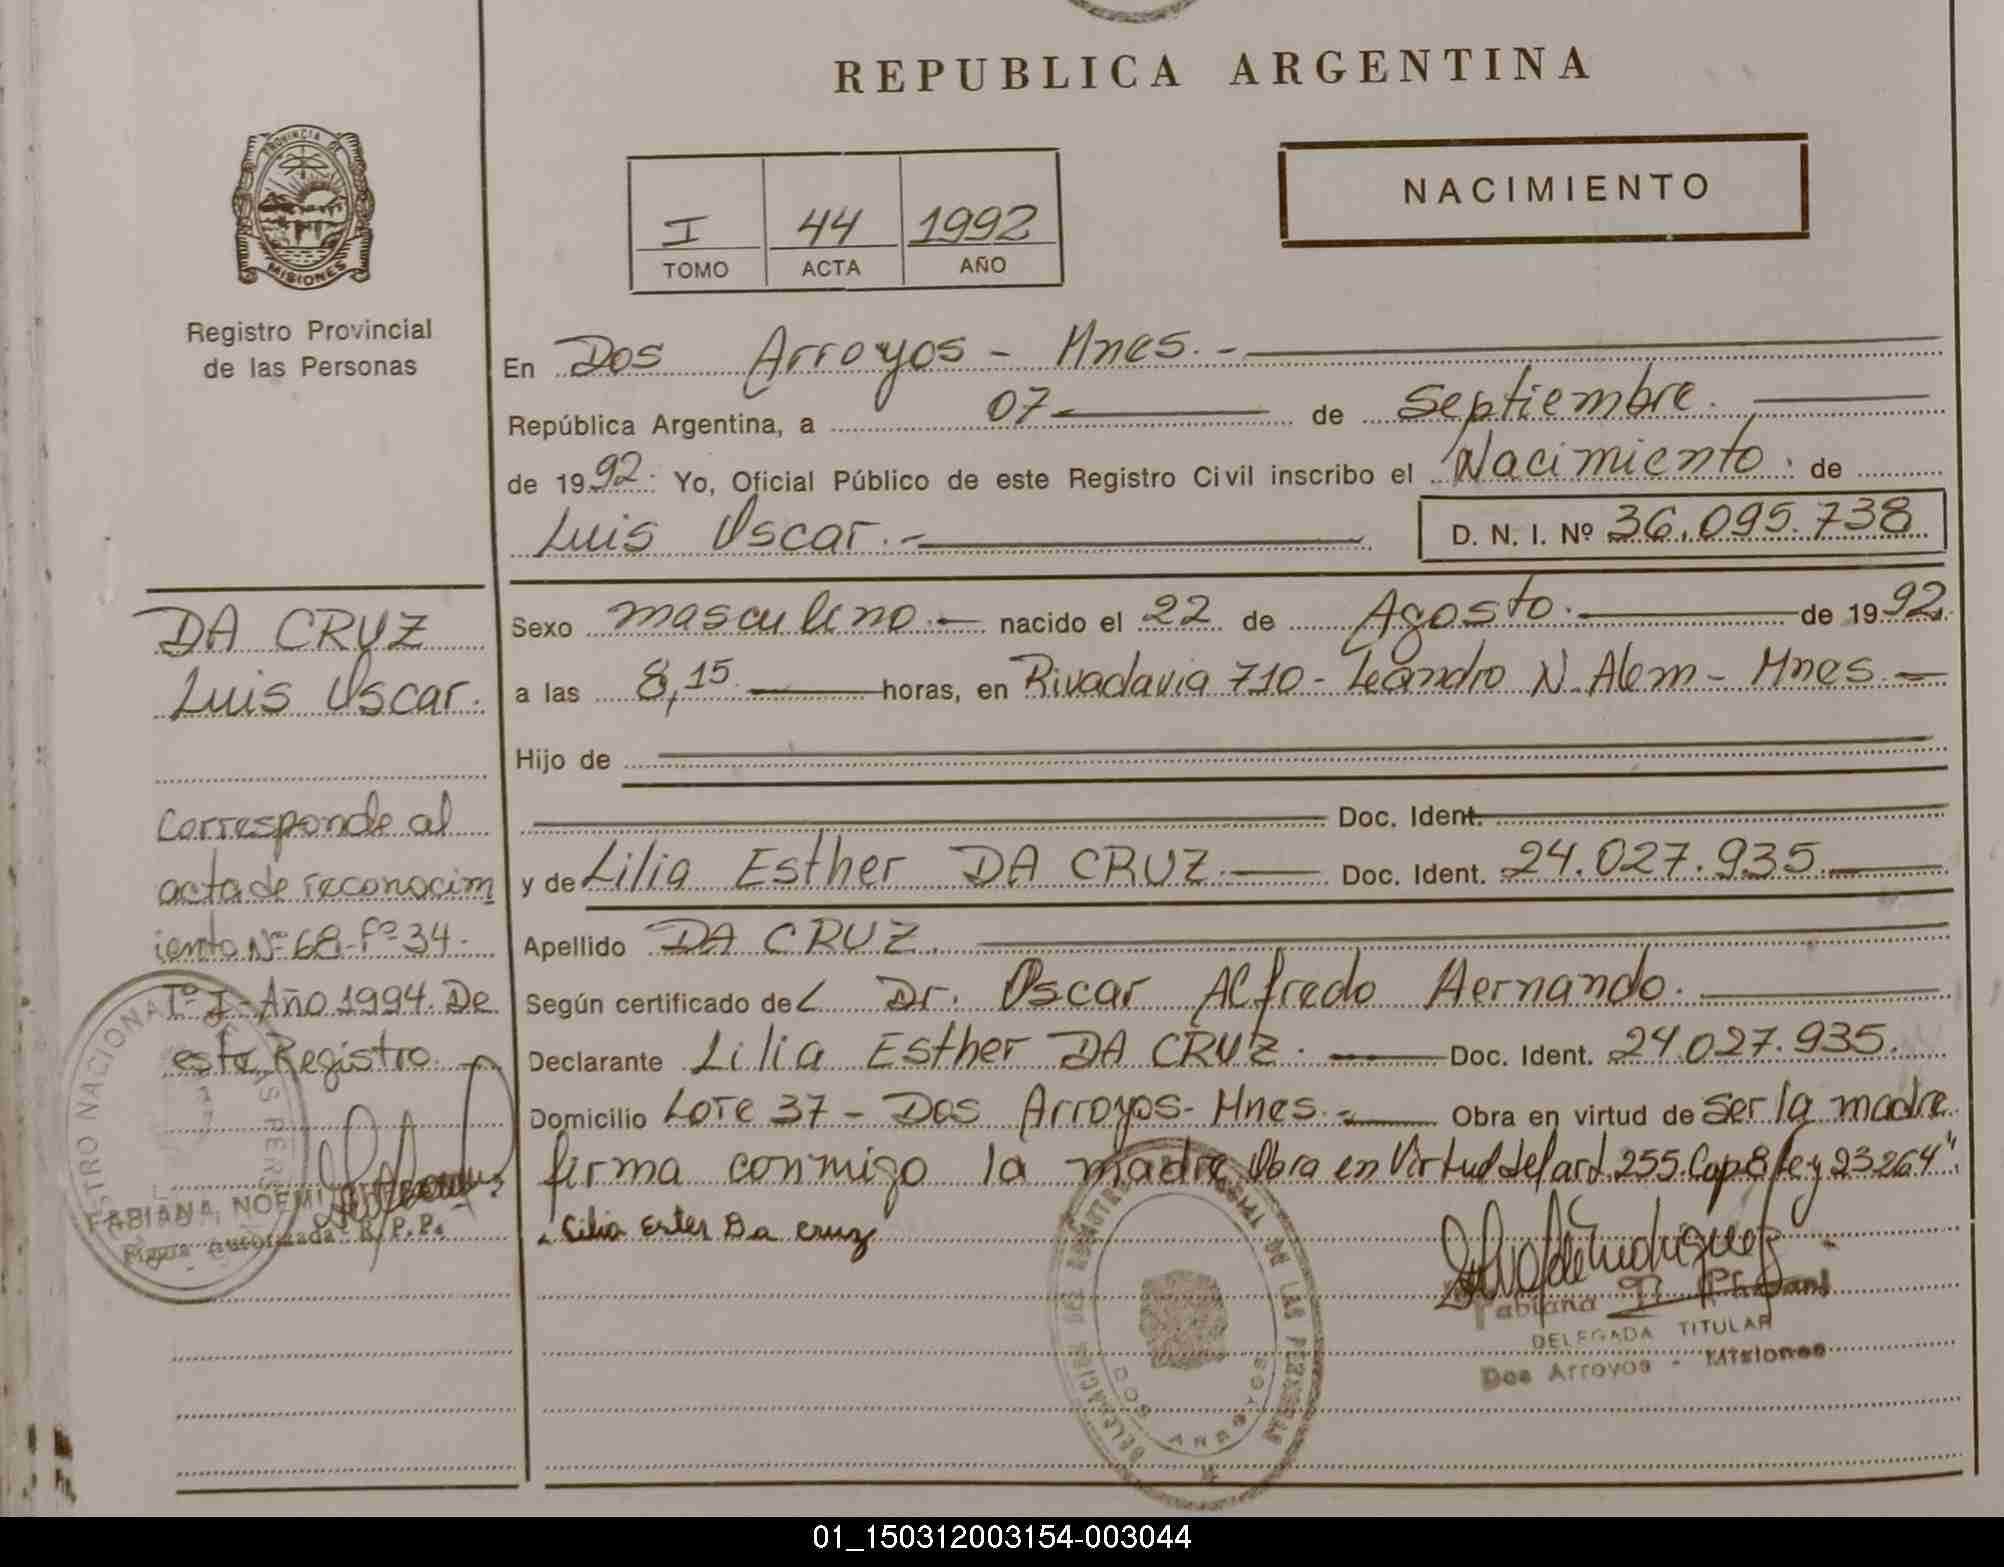 REPUBLICA ARGENTINA
PROVINCIA DE
MISIONES
Registro Provincial
de las Personas
I 44 1992
TOMO ACTA AÑO
NACIMIENTO
En Dos Arroyos - Mnes. -
República Argentina, a 07 de Septiembre.
de 1992. Yo, Oficial Público de este Registro Civil inscribo el Nacimiento. de
Luis Oscar. - D. N. I. Nº 36.095.738
DA CRUZ
Luis Oscar.
Corresponde al
acta de reconocim
iento Nº 68 - Fº 34 -
Tº I - Año 1994. De
este Registro.
FABIANA NOEMI
Firma Autorizada R. P. P.
Sexo masculino. - nacido el 22 de Agosto. de 1992.
a las 8,15 horas, en Rivadavia 710 - Leandro N. Alem - Mnes. -
Hijo de
Doc. Ident.
y de Lilia Esther DA CRUZ. Doc. Ident. 24.027.935.
Apellido DA CRUZ.
Según certificado del Dr. Oscar Alfredo Hernando.
Declarante Lilia Esther DA CRUZ. Doc. Ident. 24.027.935.
Domicilio Lote 37 - Dos Arroyos - Mnes. - Obra en virtud de ser la madre
firma conmigo la madre, Obra en Virtud del art. 255. Cap 8 ley 23264"
Lilia Ester Da Cruz
Fabiana
DELEGADA TITULAR
Dos Arroyos - Misiones
DELEGACION DEL REGISTRO DE LAS PERSONAS
DOS ARROYOS
01_150312003154-003044